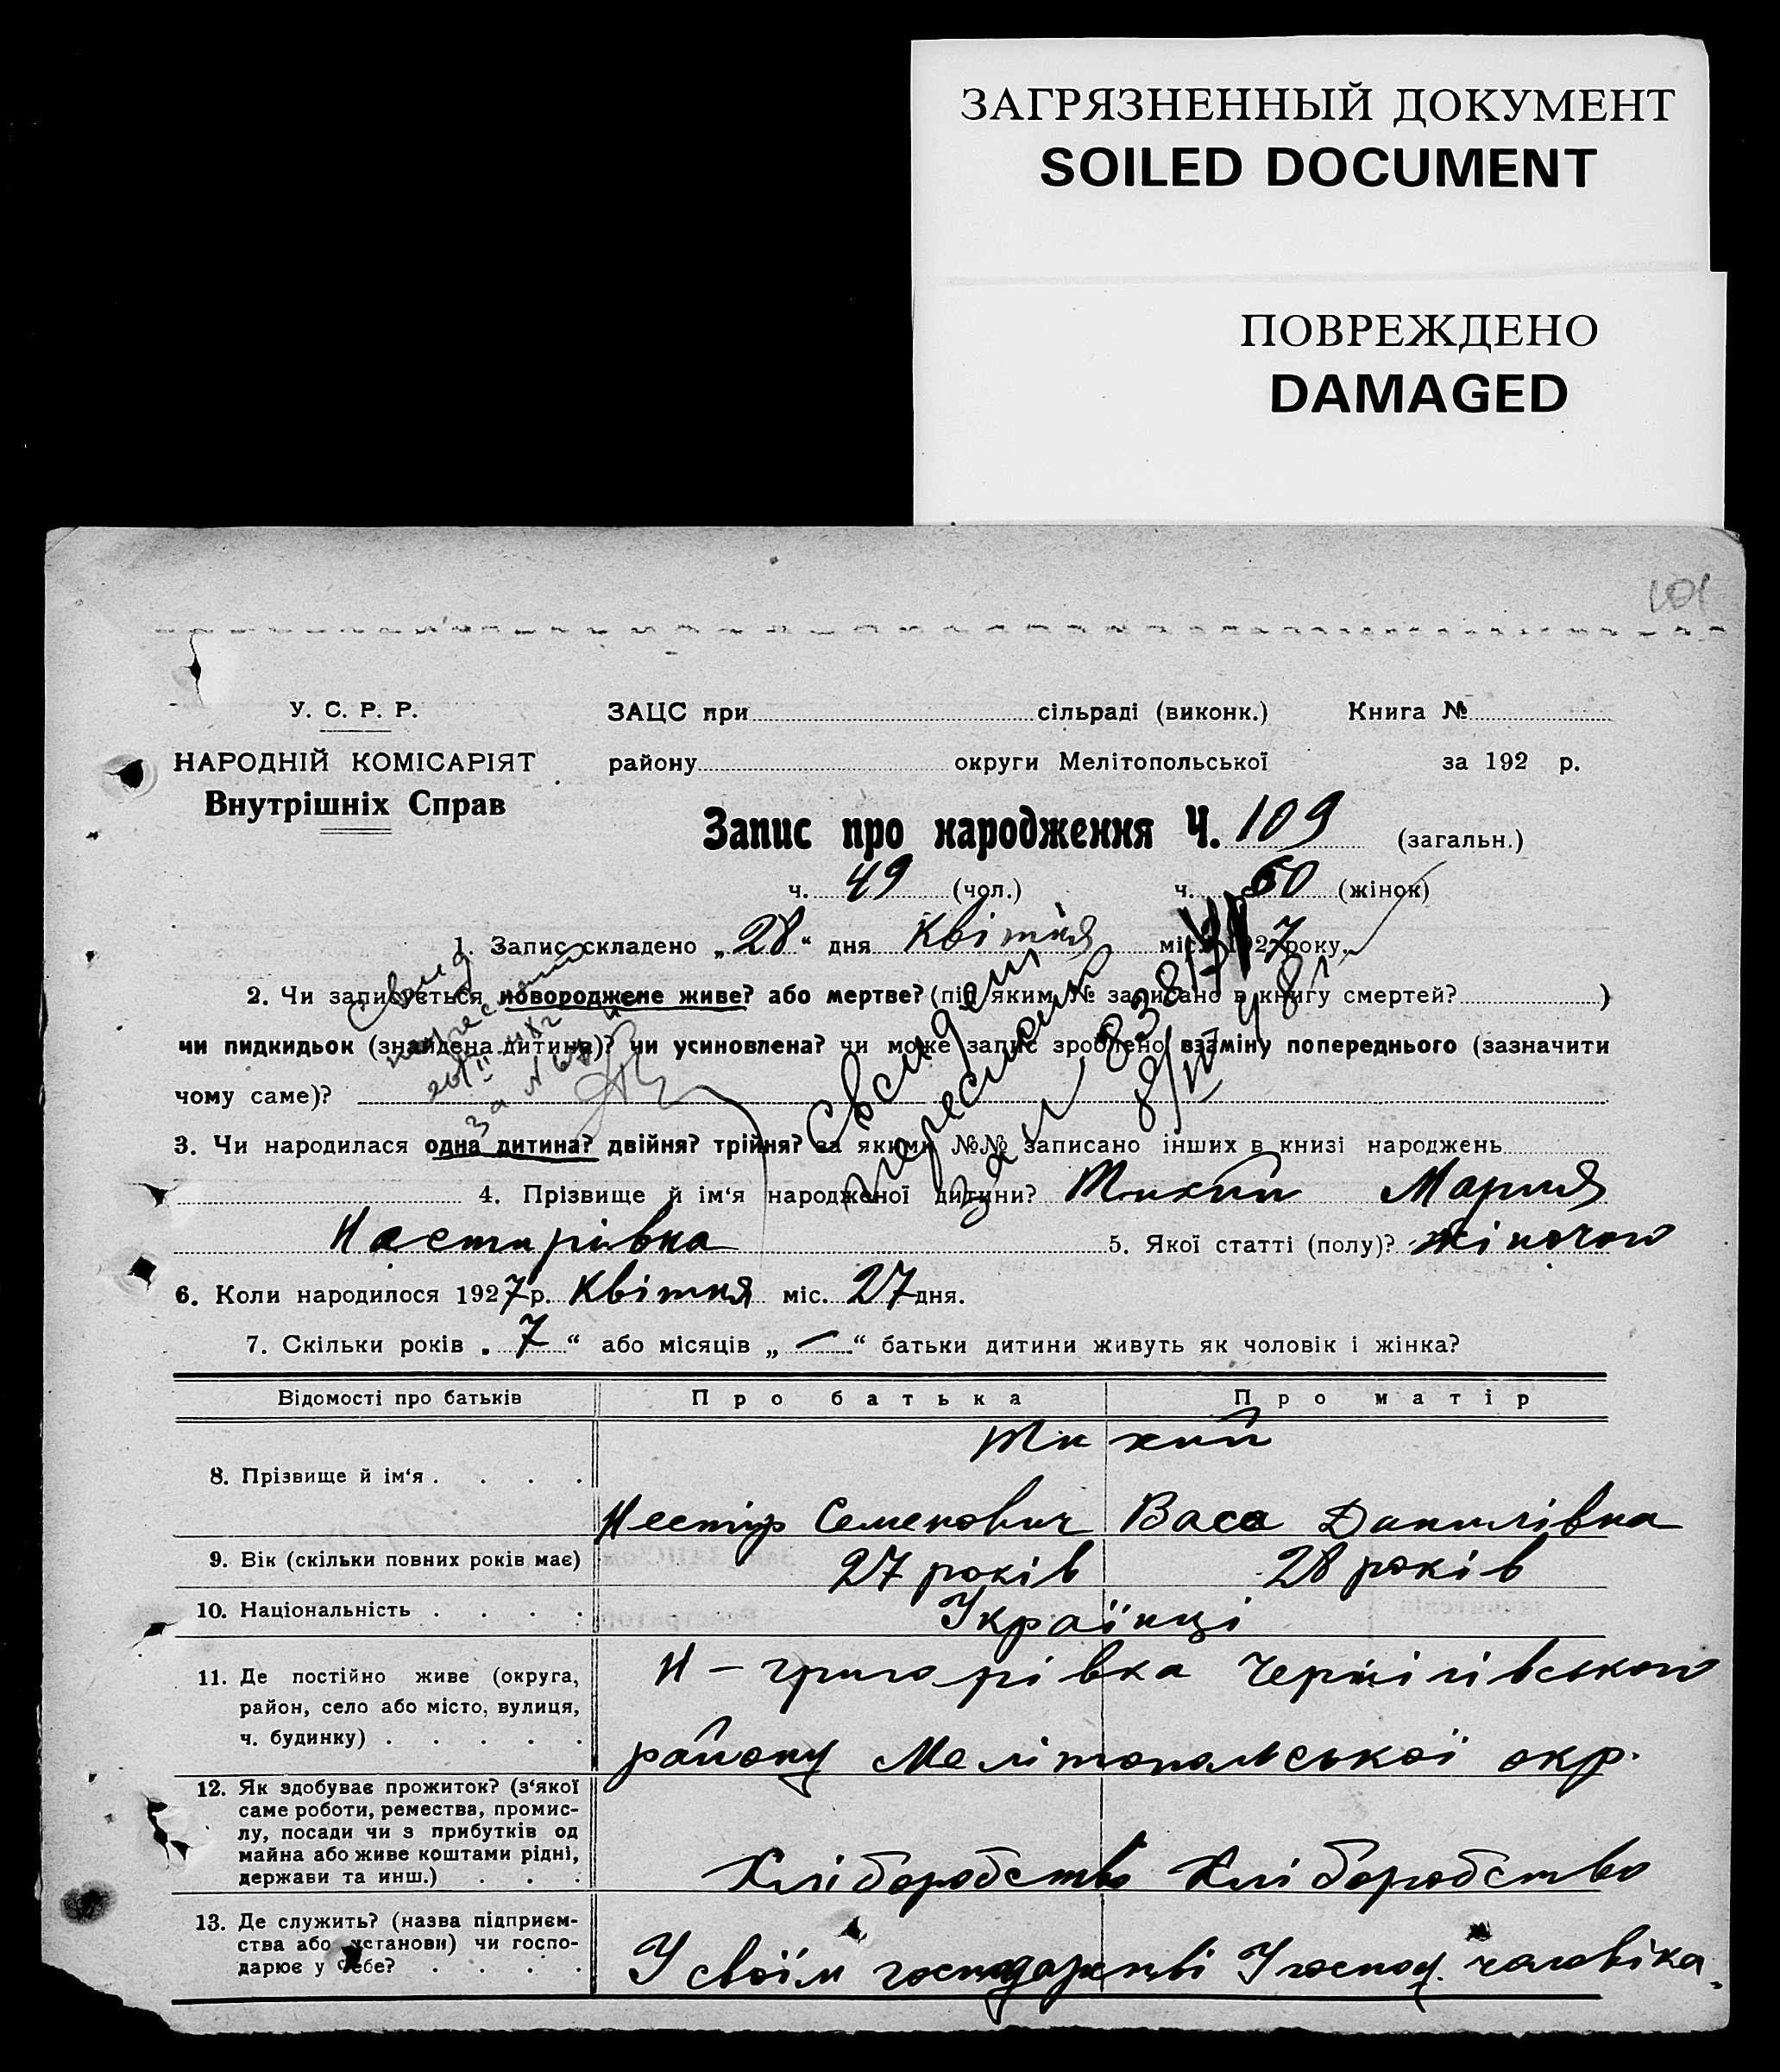 ЗАГРЯЗНЕННЫЙ ДОКУМЕНТ
SOILED DOCUMENT
ПОВРЕЖДЕНО
DAMAGED
101
У. С. Р. Р.
НАРОДНІЙ КОМІСАРІЯТ
Внутрішніх Справ
ЗАЦС при сільраді (виконк.) Книга №
району округи Мелітопольської за 192 р.
Запис про народження Ч. 109 (загальн.)
ч. 49 (чол.) ч. 60 (жінок)
1. Запис складено „28“ дня Квітня міс. 1927 року.
2. Чи записується новороджене живе? або мертве? (під яким № записано в книгу смертей? )
чи пидкидьок (знайдена дитина)? чи усиновлена? чи може запис зроблено взаміну попереднього (зазначити
чому саме)?
3. Чи народилася одна дитина? двійня? трійня? за якими №№ записано інших в книзі народжень
4. Прізвище й ім‘я народженої дитини? Тихий Мария
Нестирівна 5. Якої статті (полу)? жіночого
6. Коли народилося 1927 р. Квітня міс. 27 дня.
7. Скільки років „7“ або місяців „—“ батьки дитини живуть як чоловік і жінка?
Відомості про батьків Про батька Про матір
8. Прізвище й ім‘я . . . . Тихий
Нестір Семенович Васа Данилівна
9. Вік (скільки повних років має) 27 років 28 років
10. Національність . . . . Українці
11. Де постійно живе (округа,
район, село або місто, вулиця,
ч. будинку) . . . . .
Н-григорівка Чернігівського
району Мелітопольської окр.
12. Як здобуває прожиток? (з‘якої
саме роботи, ремества, промис-
лу, посади чи з прибутків од
майна або живе коштами рідні,
держави та инш.) . . .
Хліборобство Хліборобство
13. Де служить? (назва підприєм-
ства або установи) чи госпо-
дарює у себе? . . . .
У своїм господарстві У господ. чоловіка.